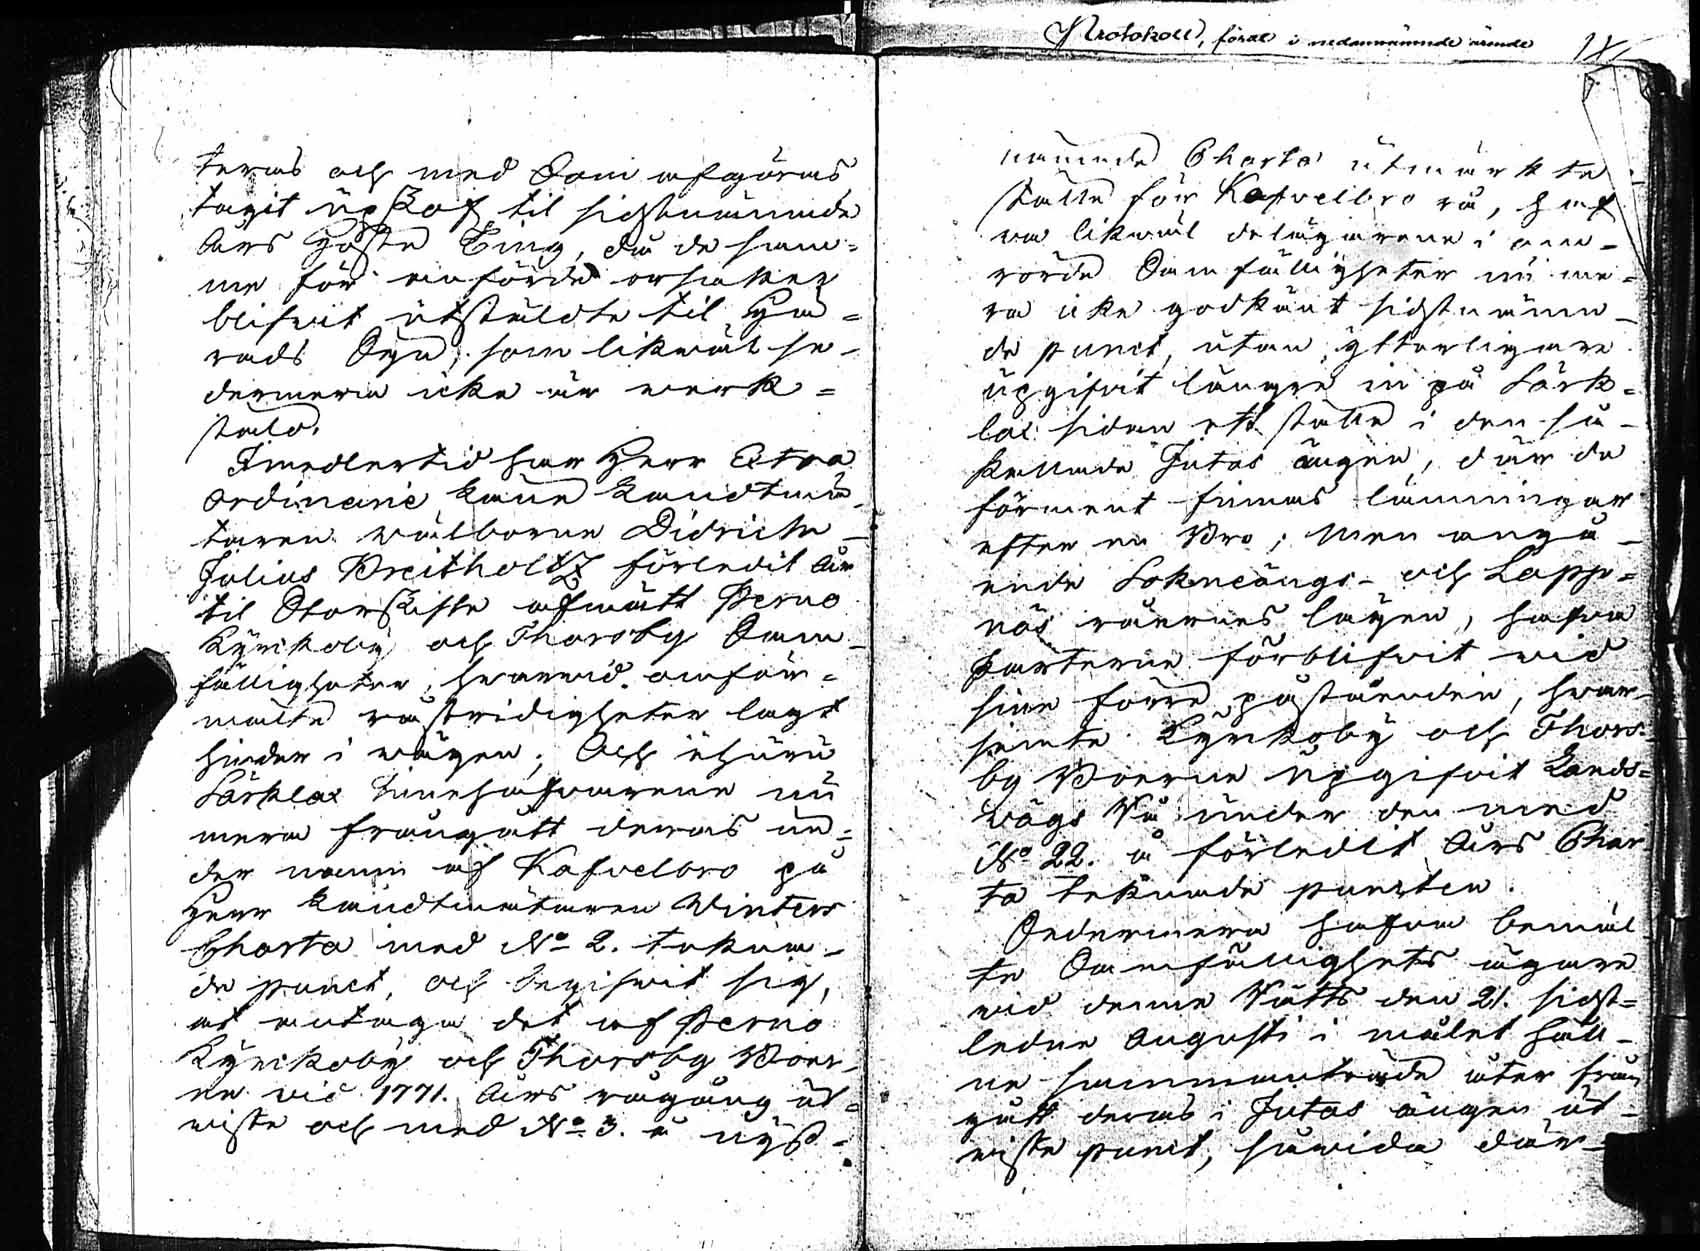 teras och med dom afgöras,
tagit upskof til sidstnämnde
Års Höste Ting, då de sam=
me för anförde orsaker
blifvit utstäldte til Hä=
rads Syn, som likväl se-
dermera icke är verk=
stäld.
Imedlertid har Herr Extra
ordinarie Landtmä-
taren välborne Didrich
Julius Breitholtz förledit år
til Storskifte afmätt Perno
Kyrkoby och Thorsby Sam-
fälligheter, hvarvid omför=
mälte råstridigheter lagt
hinder i vägen; Och ehuru
Särklax Innehafvarene nu
mera frångått deras un=
der namn af Kafvelbro på
Herr Landtmätaren Winters
Charta med No 2. tekna-
de punct, och begifvit sig,
at antaga det af Perno
Kyrkoby och Thorsby Boer-
ne vid 1771. Års rågång ut=
viste och med No 3. å nyss=
Protokoll, fördt i nedannämnde ärende
nämnde Charta utmärkte
ställe för Kafvelbro rå, haf
va likväl delägarene i om-
rörde Samfälligheter nu me-
ra icke godkänt sidstnämn-
de punct, utan ytterligare
upgifvit längre in på Särk=
lax sidan ett ställe i den så
kallade Jutas ängen, där de
förment finnas lämningar
efter en Bro; Men angå-
ende Sokneängs- och Lapp=
näs råernes lägen, hafva
Parterne förblifvit vid
sine förre påståenden, hvar-
jemte Kyrkoby och Thors-
by Boerne upgifvit Lands=
vägs Rå under den med
No 22. å förledit Års Char
ta teknade puncten.
Sedermera hafva bemäl
te Samfällighets ägare
vid denne Rätts den 21. sidst=
ledne Augusti i målet håll-
ne sammanträde åter från
gått deras i Jutas ängen ut-
viste punct, såvida där-